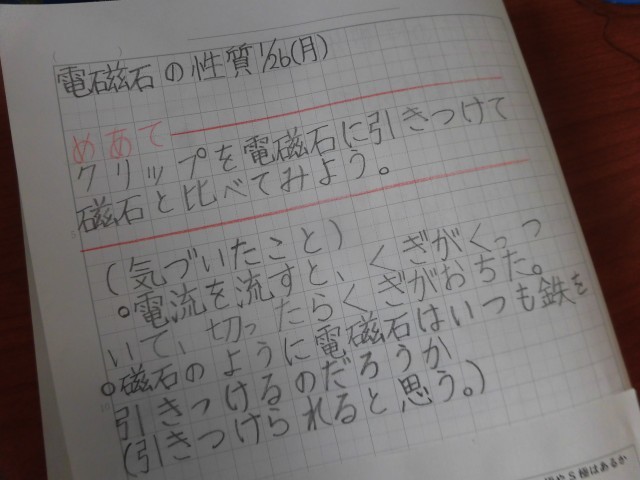 電磁石の性質 1/26(月)
めあて
クリップを電磁石に引きつけて
磁石と比べてみよう。
(気づいたこと)
○電流を流すと、くぎがくっつ
いて、切ったらくぎがおちた。
○磁石のように電磁石はいつも鉄を
引きつけるのだろうか
(引きつけられると思う。)
S極はあるか